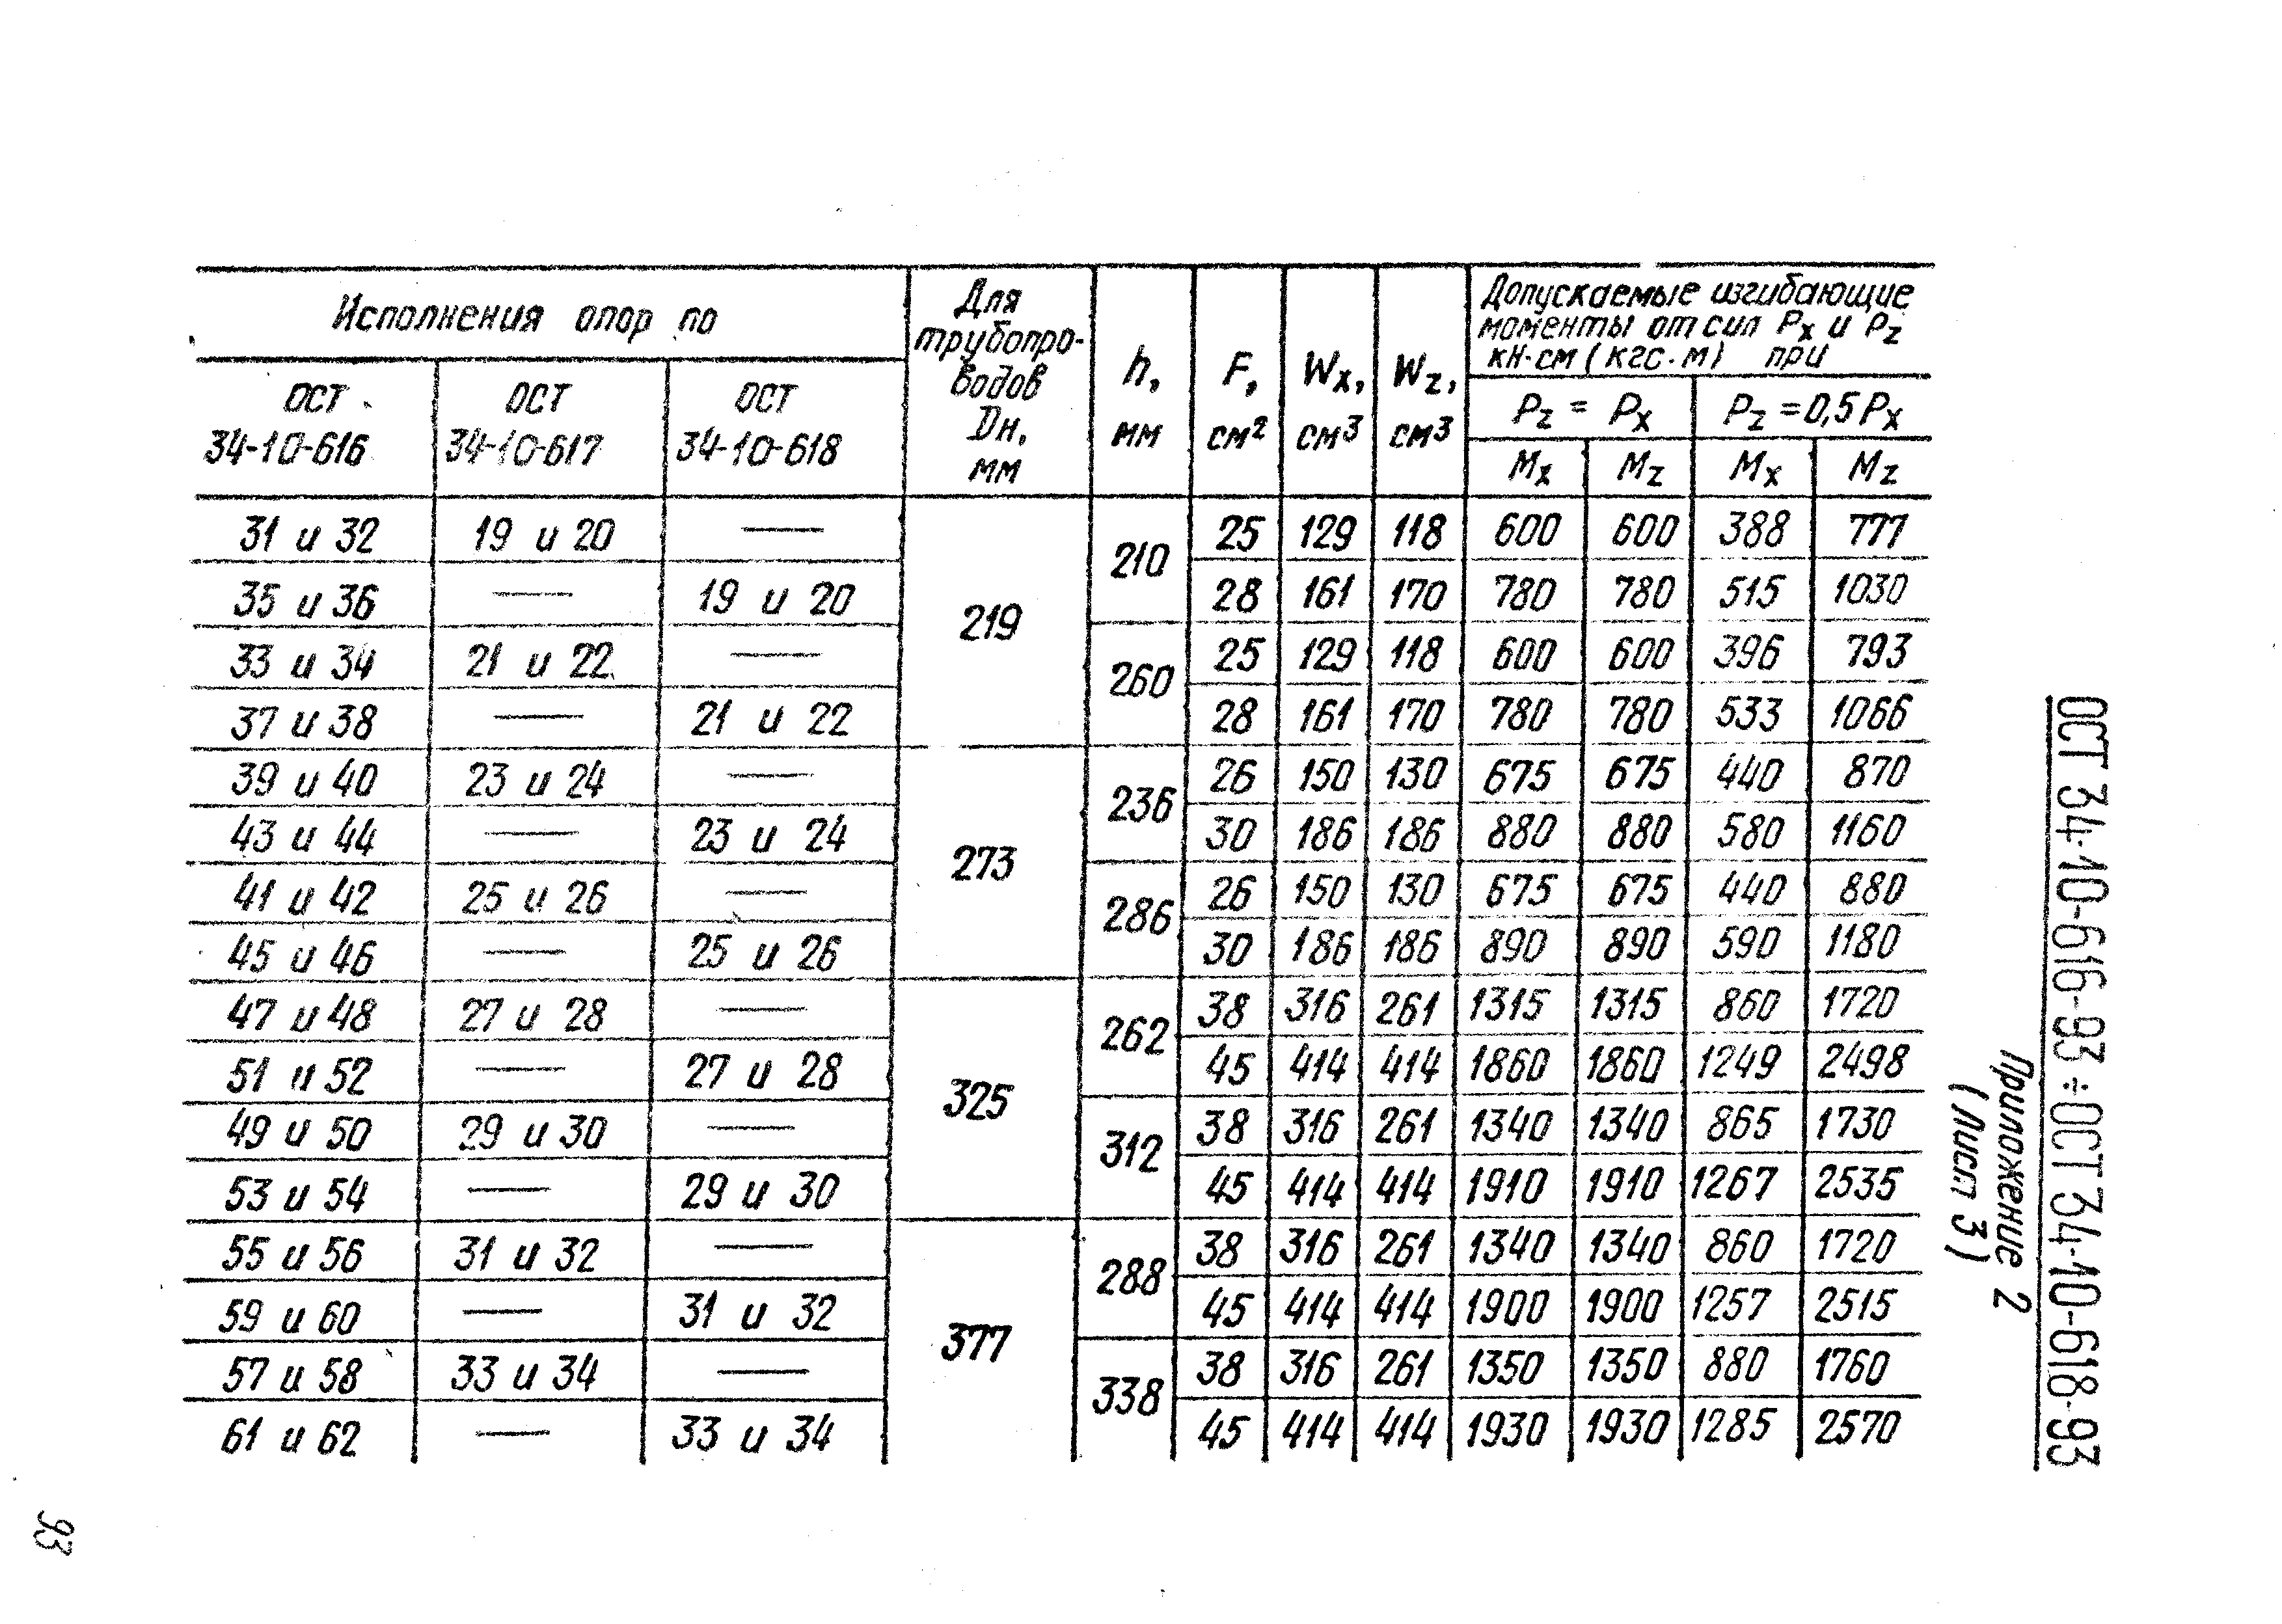 Исполнения опор по
ОСТ 34-10-616
ОСТ 34-10-617
ОСТ 34-10-618
Для трубопро-
водов
Dн,
мм
h,
мм
F,
см²
Wx,
см³
Wz,
см³
Допускаемые изгибающие
моменты от сил Px и Pz
кН·см (кгс·м) при
Pz = Px
Pz = 0,5 Px
Mx Mz Mx Mz
31 и 32 19 и 20 — 219 210 25 129 118 600 600 388 777
35 и 36 — 19 и 20 28 161 170 780 780 515 1030
33 и 34 21 и 22 — 260 25 129 118 600 600 396 793
37 и 38 — 21 и 22 28 161 170 780 780 533 1066
39 и 40 23 и 24 — 273 236 26 150 130 675 675 440 870
43 и 44 — 23 и 24 30 186 186 880 880 580 1160
41 и 42 25 и 26 — 286 26 150 130 675 675 440 880
45 и 46 — 25 и 26 30 186 186 890 890 590 1180
47 и 48 27 и 28 — 325 262 38 316 261 1315 1315 860 1720
51 и 52 — 27 и 28 45 414 414 1860 1860 1249 2498
49 и 50 29 и 30 — 312 38 316 261 1340 1340 865 1730
53 и 54 — 29 и 30 45 414 414 1910 1910 1267 2535
55 и 56 31 и 32 — 377 288 38 316 261 1340 1340 860 1720
59 и 60 — 31 и 32 45 414 414 1900 1900 1257 2515
57 и 58 33 и 34 — 338 38 316 261 1350 1350 880 1760
61 и 62 — 33 и 34 45 414 414 1930 1930 1285 2570
ОСТ 34-10-616-93÷ОСТ 34-10-618-93
Приложение 2
(Лист 3)
93